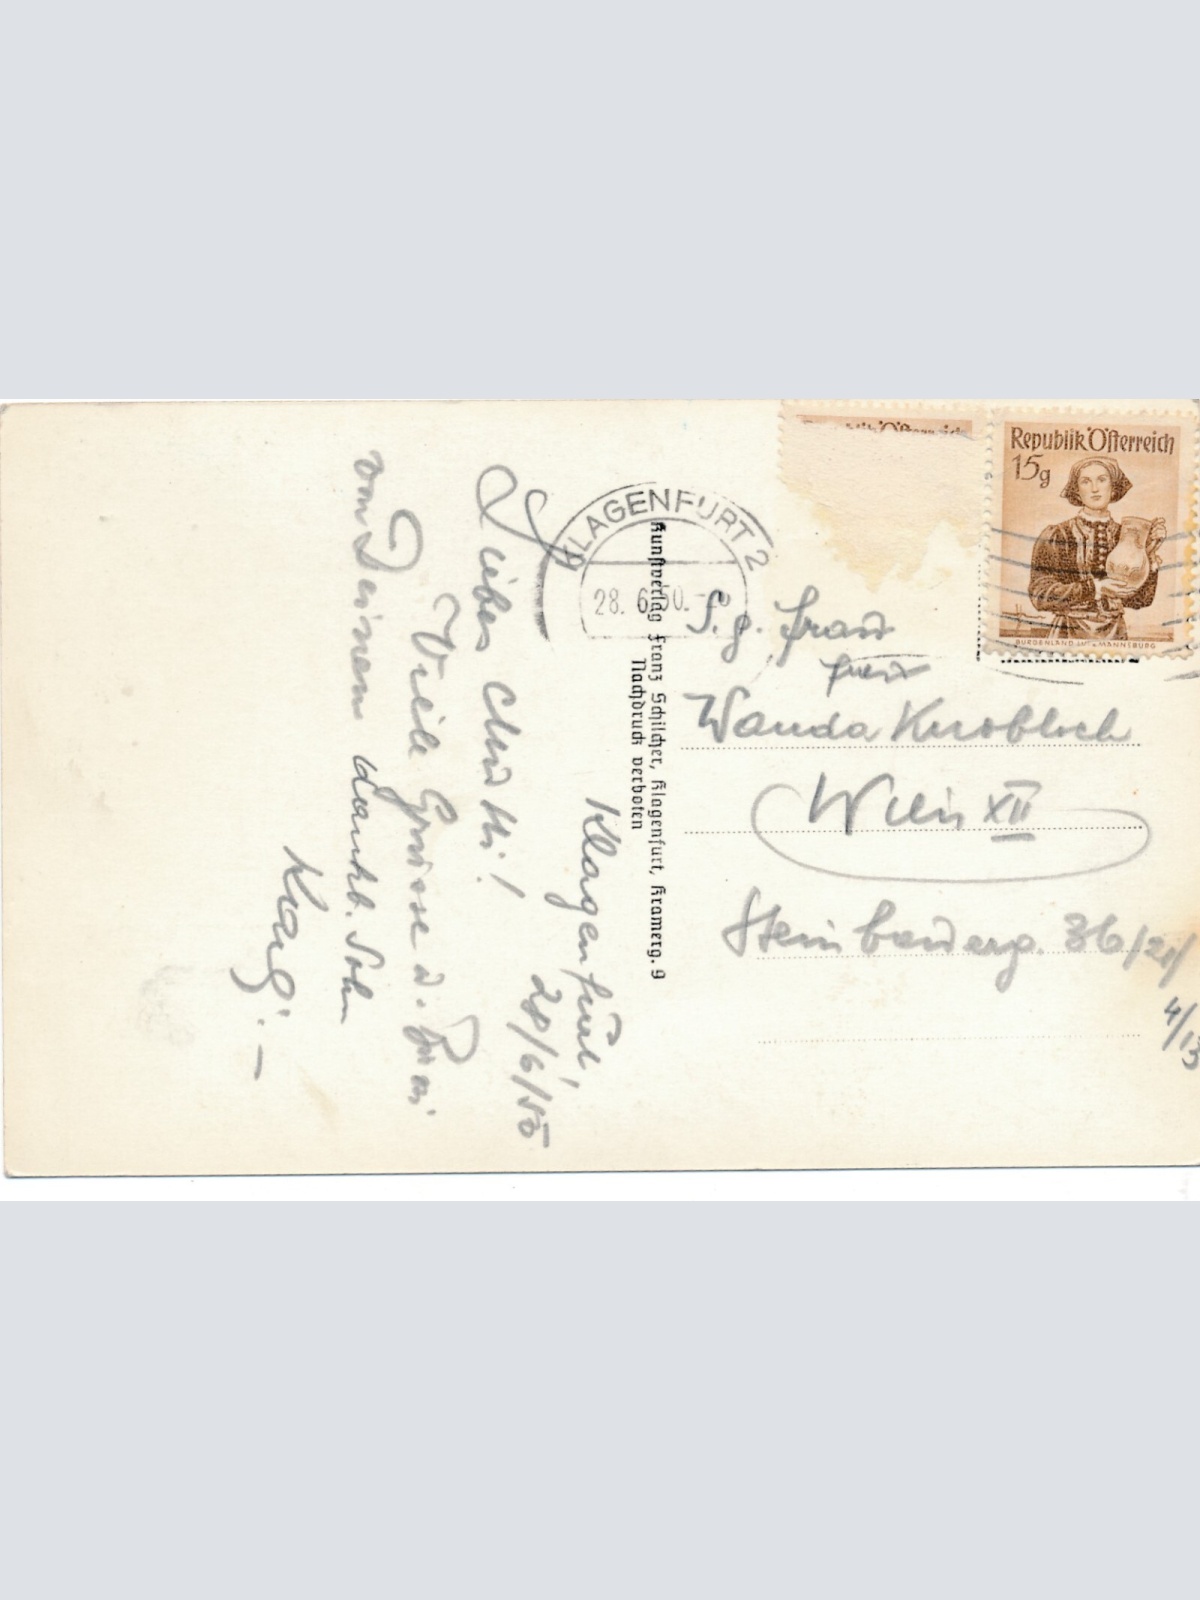 Klagenfurt,
28/6/50
Liebes
Viele Grüsse u.
von Deinem dankb. Sohn
KLAGENFURT 2
28. 6. 50.
Kunstverlag Franz Schilcher, Klagenfurt, Kramerg. 9
Nachdruck verboten
Republik Österreich
Republik Österreich
15g
BURGENLAND, LUTZMANNSBURG
S. g. Frau
Wanda Knobloch
Wien XII
36/21/
4/13